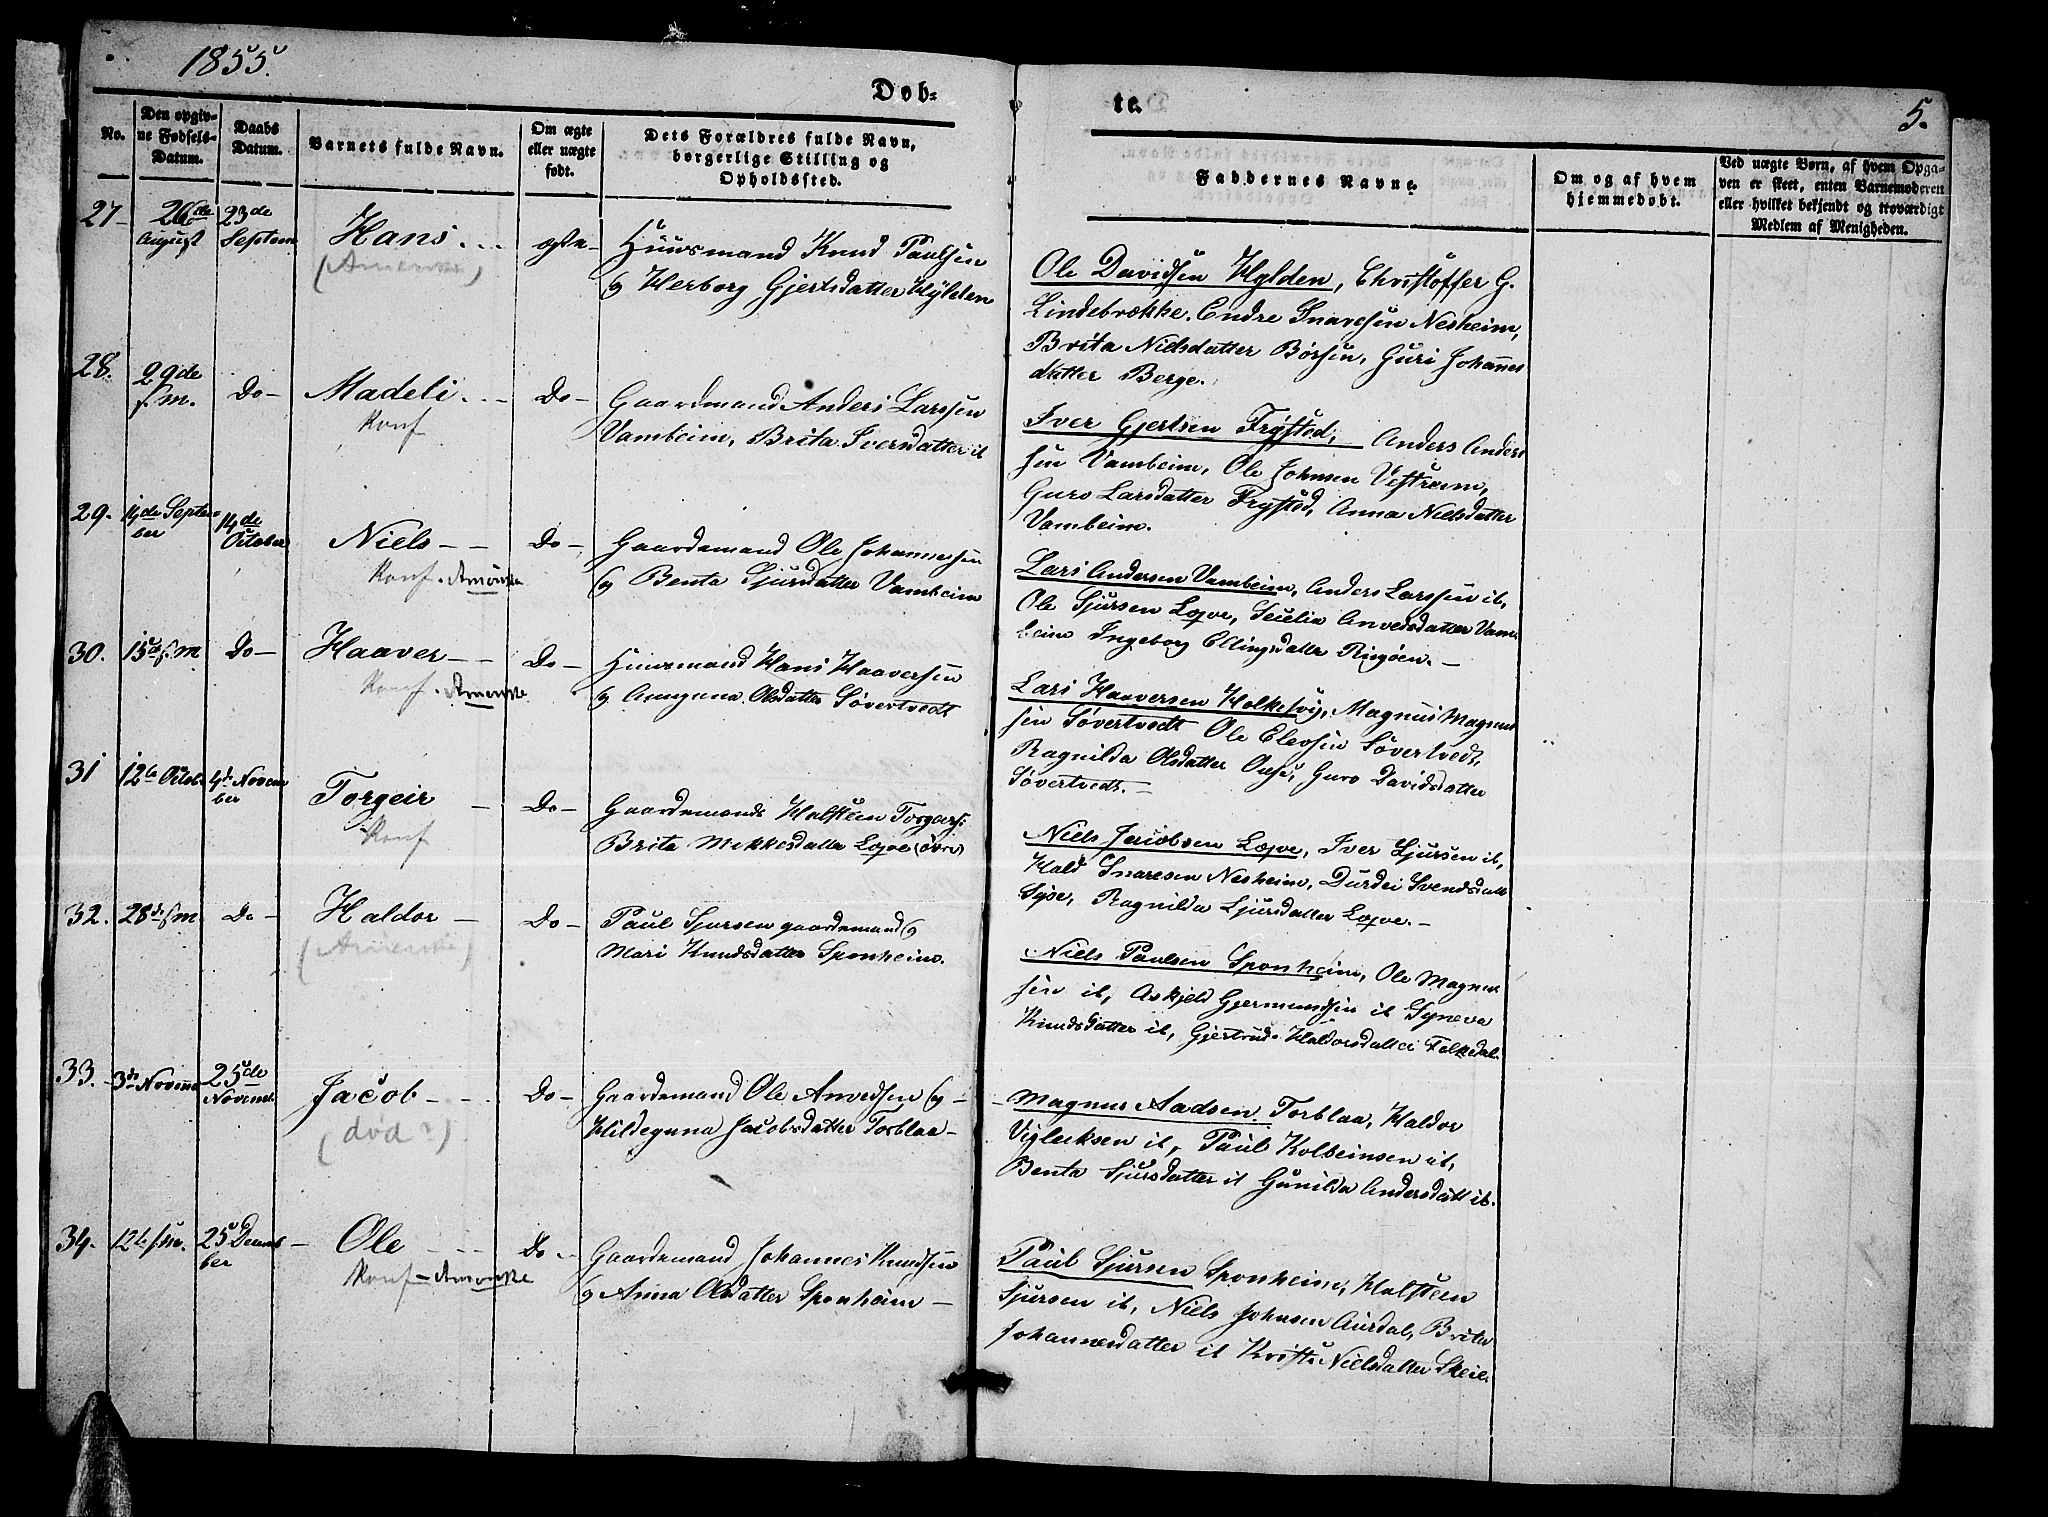 1855.
Døb=
te.
5.
No.
Den opgiv=
ne Fødsels=
Datum.
Daabs
Datum.
Barnets fulde Navn.
Om ægte
eller uægte
født.
Dets Forældres fulde Navn,
borgerlige Stilling og
Opholdssted.
Faddernes Navne.
Om og af hvem
hjemmedøbt.
Ved uægte Børn, af hvem Opga=
ven er skeet, enten Barnemoderen
eller hvilket bekjendt og troværdigt
Medlem af Menigheden.
27 -
26de
August
23de
Septem
Hans
ægte -
Huusmand Knud Paulsen
og Herborg Gjertsdatter Hylden
Ole Davidsen Hylden, Christoffer G.
Lindebrække. Endre Snaresen Nesheim,
Brita Nielsdatter Børsen, Guri Johannes
datter Berge.
28.
29de
s. m.
Do -
Madeli
Konf
Do -
Gaardmand Anders Larssen
Vambeim, Brita Iversdatter ib
Iver Gjertsen Trystad, Anders Anders
sen Vambeim, Ole Johnsen Vestrem,
Guro Larsdatter Trystad, Anna Nielsdatter
Vambeim.
29.
14de Septem
ber
14de
October
Niels - -
Konf. Amerika
Do -
Gaardemand Ole Johannessen
og Benta Sjursdatter Vambeim
Lars Andersen Vambeim, Anders Larssen ib,
Ole Sjursen Lope, Cecilia Anvedsdatter Vam
beim Ingeborg Ellingsdatter Ringøen. -
30.
15de s. m
Do -
Haaver - -
Konf. Amerika
Do -
Huusmand Hans Haaversen
og Olsdatter Søvertvedt
Lars Haaversen Holkesvig, Magnus Magnus
sen Søvertvedt Ole Elevsen Søvertvedt,
Ragnilda Olsdatter Guro Davidsdatter
Søvertvedt. -
31
12te Octob.
4de Novem
ber
Torgeir -
Konf
Do -
Gaardemand Halsteen Torgers.
Brita Mikkelsdatter Lope (øvre)
Niels Jacobsen Lope, Iver Sjursen ib,
Hald Snaresen Nesheim, Durdei Svendsdatt
Syse, Ragnilda Sjursdatter Lope. -
32.
28de s. m.
Do -
Haldor -
Do -
Paul Sjursen gaardemand og
Mari Knudsdatter Sponheim.
Niels Paulsen Sponheim, Ole Magnus
sen ib, Askjeld Gjermundsen ib Syneva
Knudsdatter ib, Gjertrud Haldorsdatter Folkedal.
33.
3de Novem
25de
Novemb.
Jacob - -
(død?)
Do -
Gaardemand Ole Anvedsen og -
Hildeguna Jacobsdatter Torblaa -
- Magnus Aadsen Torblaa, Haldor
Viglecksen ib, Paul Kolbeinsen ib,
Benta Sjursdatter ib Gunilda Andersdatt ib.
34.
12te s. m.
25 Decemb
ber
Ole
Konf - Amerika
Do -
Gaardemand Johannes Knudsen
og Anna Olsdatter Sponheim -
Paul Sjursen Sponheim, Halsteen
Sjursen ib, Niels Johnsen Aurdal, Brita
Johannesdatter ib Kristi Nielsdatter Skeie.